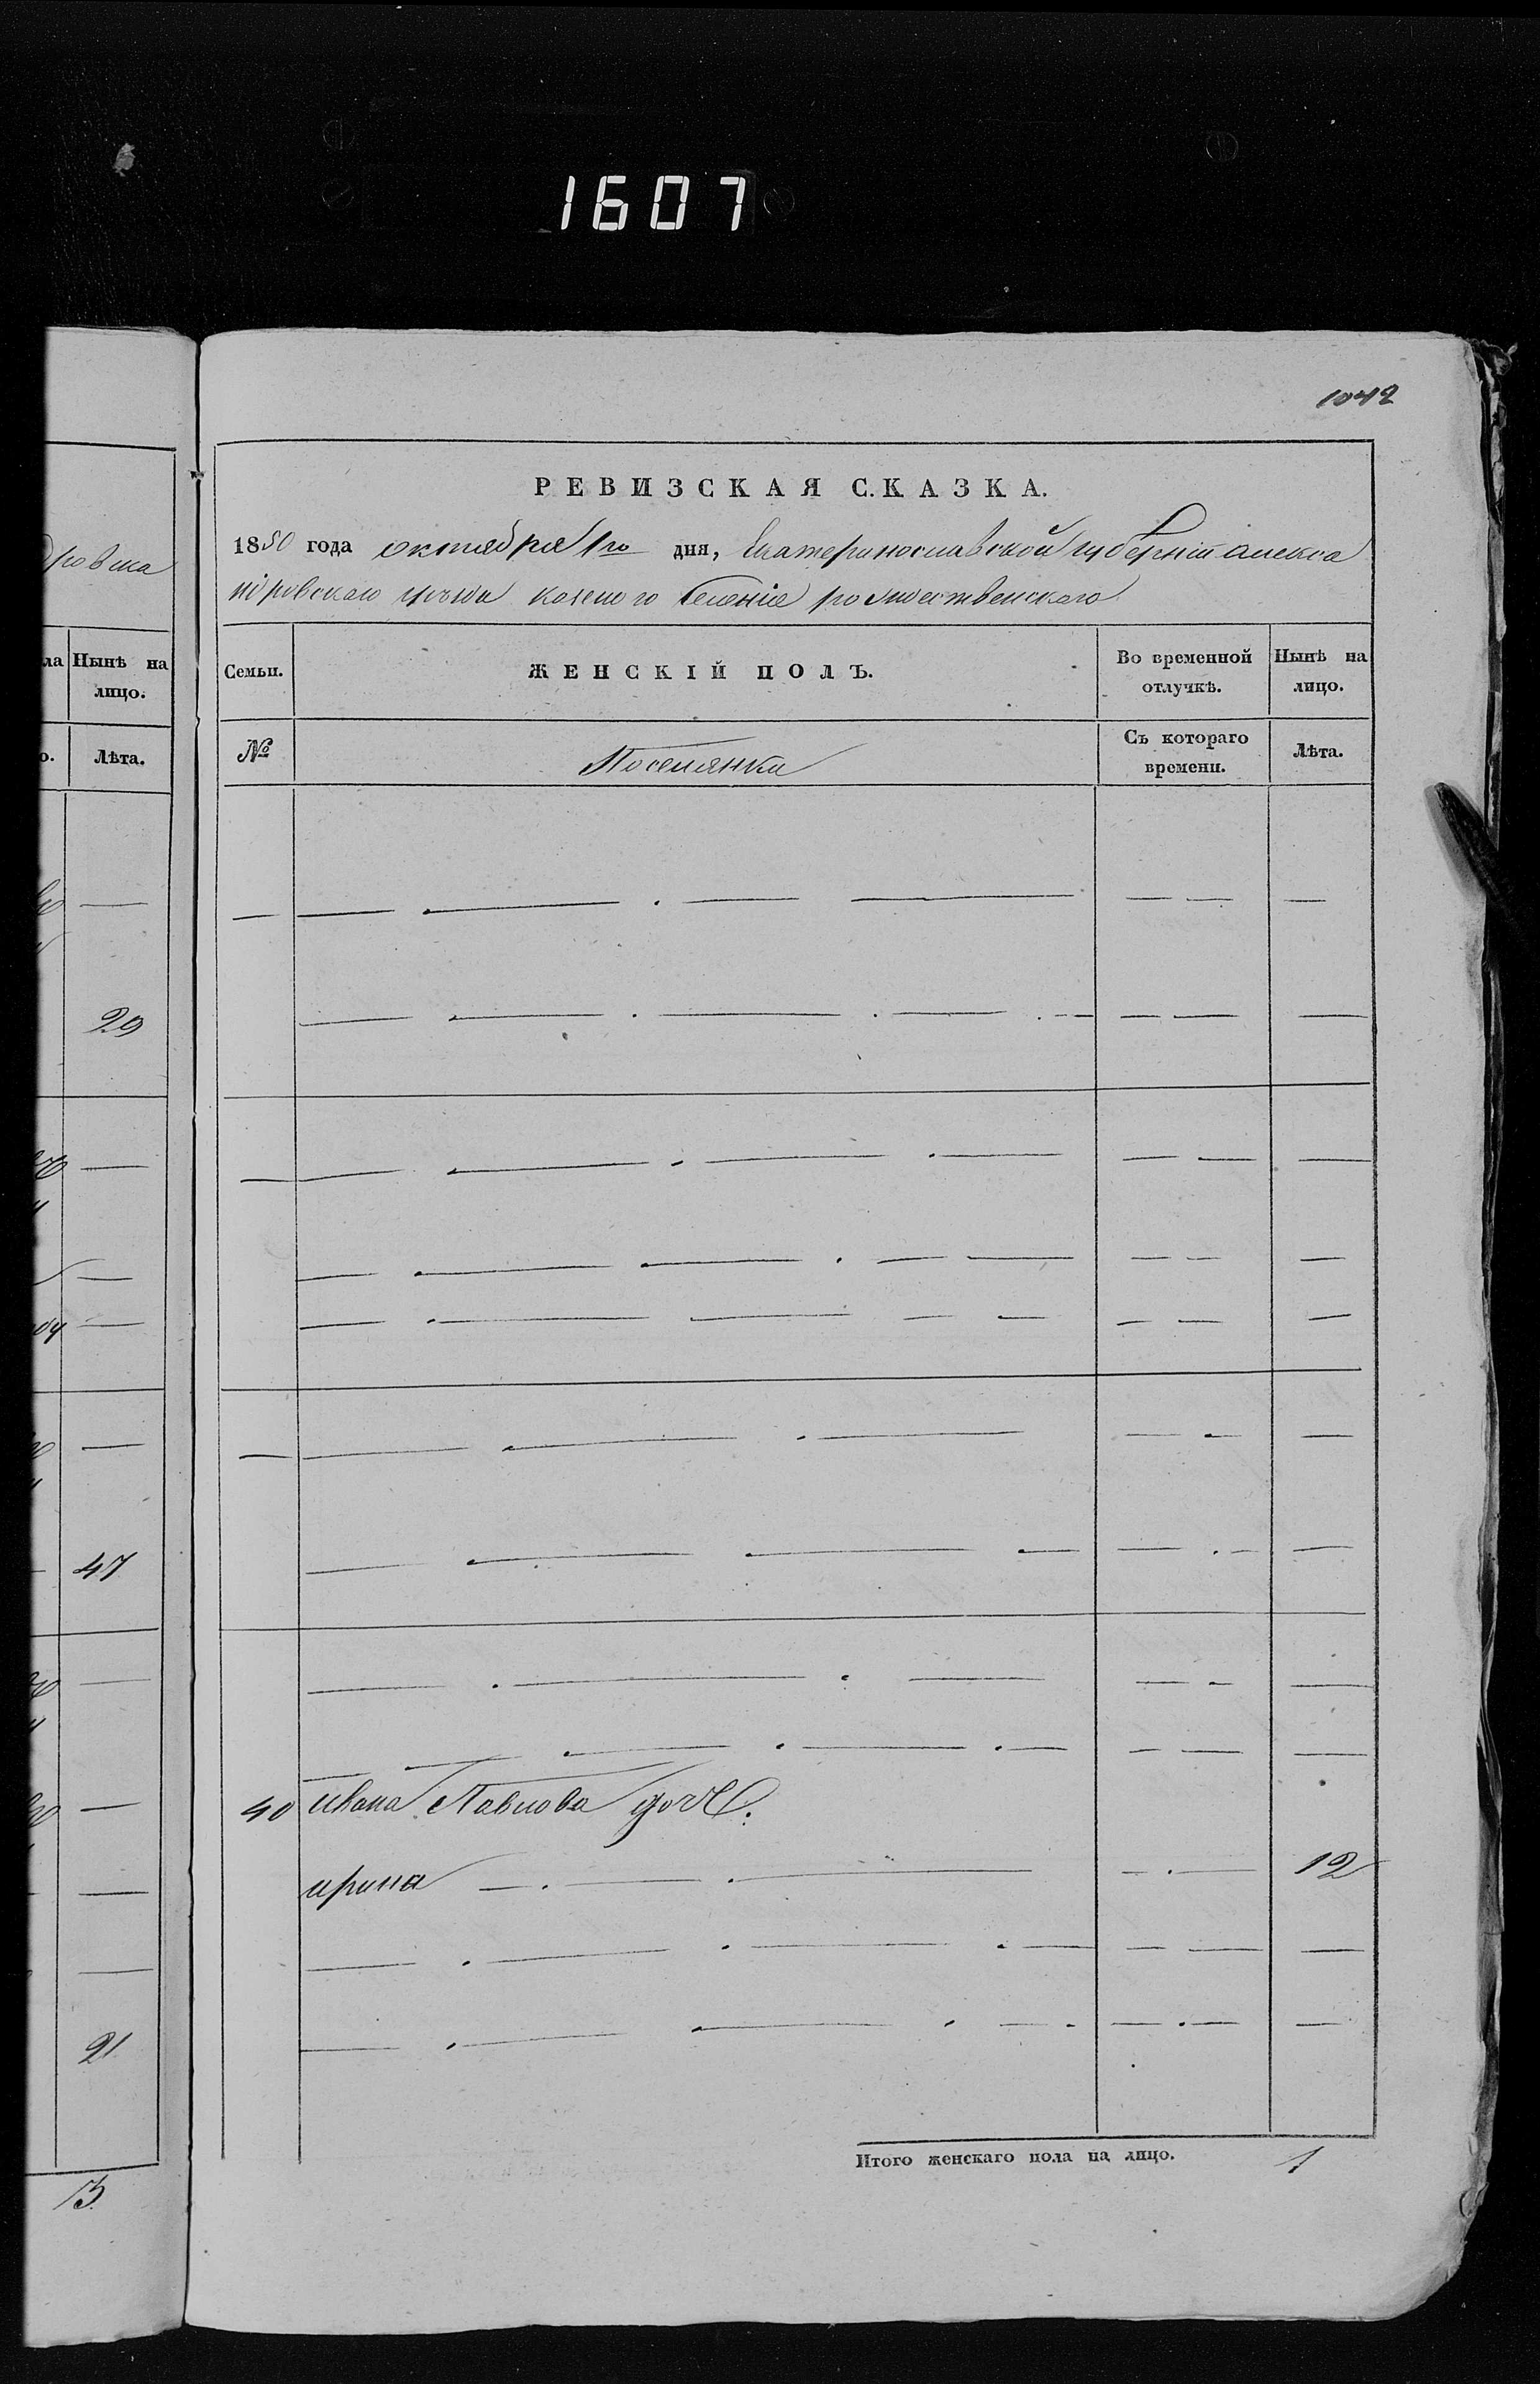 1607
1042
РЕВИЗСКАЯ СКАЗКА.
1850 года октября 1го дня, Екатеринославской губерніи алекса
ндровскаго уезда казеного селенія рождественскаго
Семьи.
ЖЕНСКІЙ ПОЛЪ.
Во временной отлучкѣ.
Нынѣ на лицо.
№
Поселянки
Съ котораго времени.
Лѣта.
40 ивана Павлова дочь.
ирина 12
Итого женскаго пола на лицо. 1
ровска
ла
Нынѣ на
лицо.
о.
Лѣта.
29
47
21
3